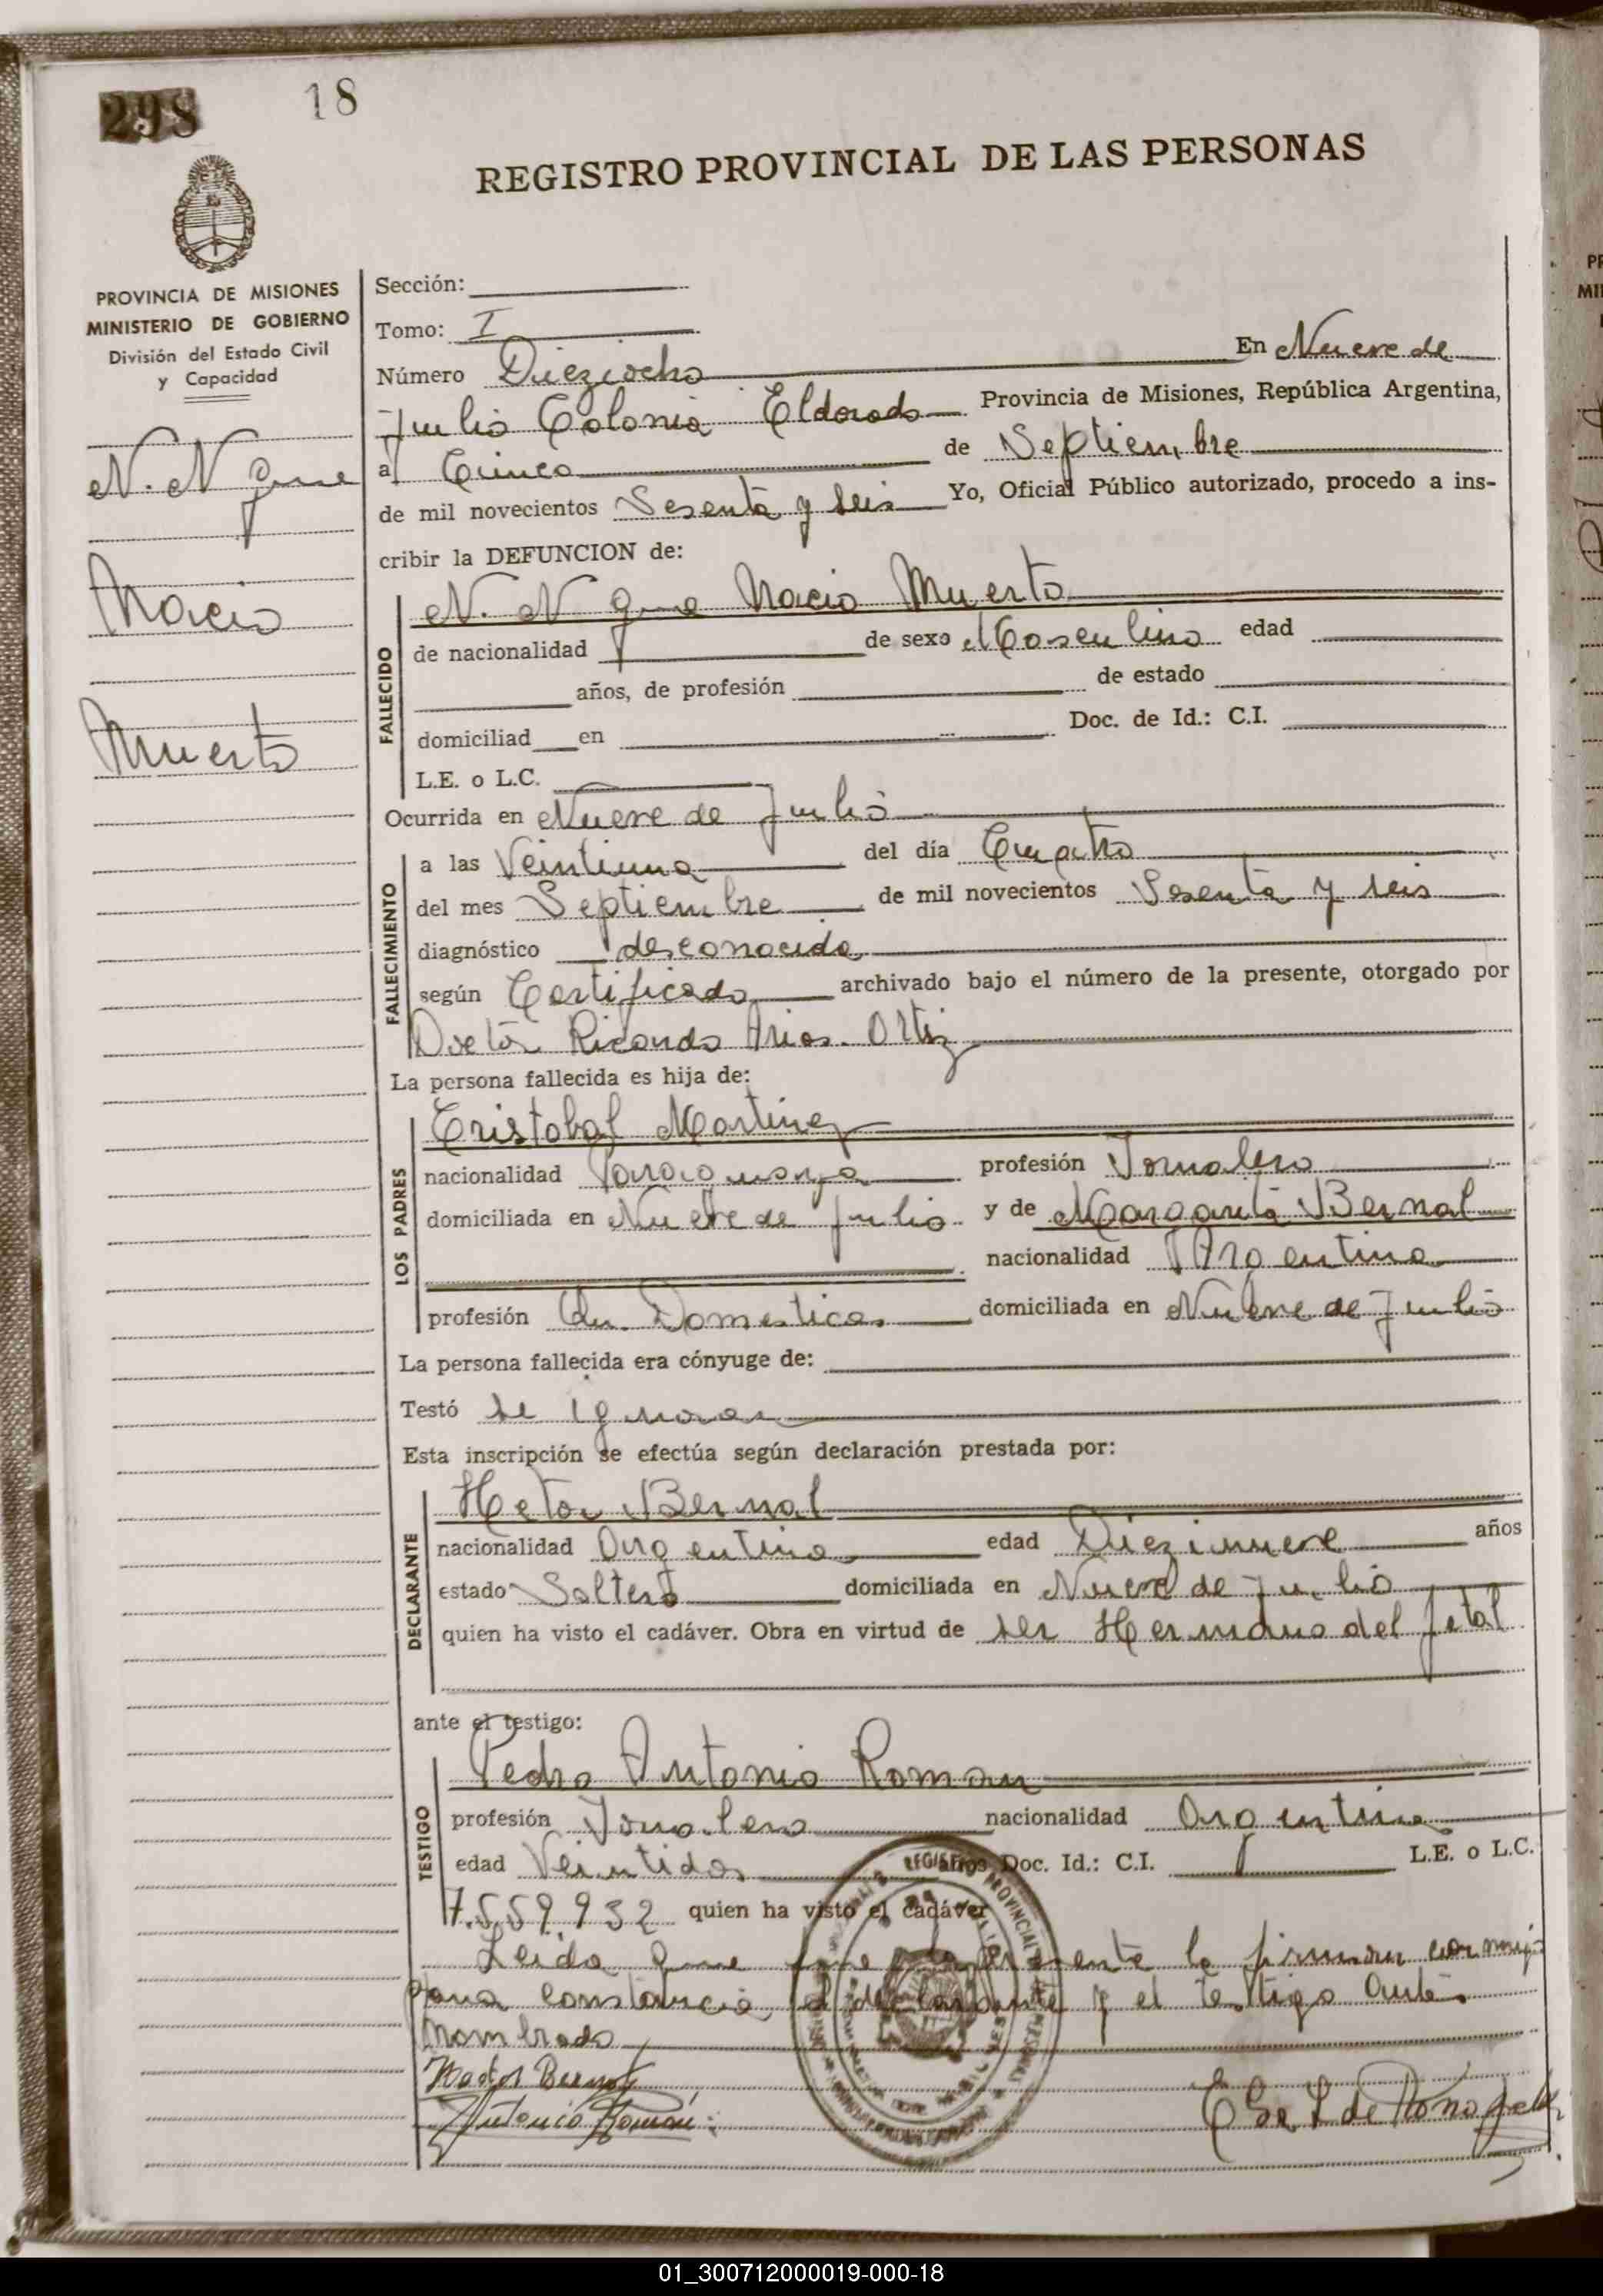 298 18
REGISTRO PROVINCIAL DE LAS PERSONAS
PROVINCIA DE MISIONES
MINISTERIO DE GOBIERNO
División del Estado Civil
y Capacidad
N. N que
Nacio
Muerto
Sección:
Tomo: I
Número Dieziocho En Nueve de
Julio Colonia Eldorado Provincia de Misiones, República Argentina,
a Cinco de Septiembre
de mil novecientos Sesenta y seis Yo, Oficial Público autorizado, procedo a ins-
cribir la DEFUNCION de:
FALLECIDO
N. N que Nacio Muerto
de nacionalidad de sexo Masculino edad
años, de profesión de estado
domiciliad en Doc. de Id.: C.I.
L.E. o L.C.
Ocurrida en Nueve de Julio
FALLECIMIENTO
a las Veintiuna del día Cuatro
del mes Septiembre de mil novecientos Sesenta y seis
diagnóstico desconocido
según Certificado archivado bajo el número de la presente, otorgado por
Doctor Ricardo Arias. Ortiz
La persona fallecida es hija de:
LOS PADRES
Cristobal Martinez
nacionalidad Paraguaya profesión Jornalero
domiciliada en Nueve de Julio y de Margarita Bernal
nacionalidad Argentina
profesión Domesticos domiciliada en Nueve de Julio
La persona fallecida era cónyuge de:
Testó se ignora
Esta inscripción se efectúa según declaración prestada por:
DECLARANTE
Hetor Bernal
nacionalidad Argentina edad Diezinueve años
estado Soltero domiciliada en Nueve de Julio
quien ha visto el cadáver. Obra en virtud de ser Hermano del fetal
ante el testigo:
TESTIGO
Pedro Antonio Roman
profesión Jornalero nacionalidad Argentina
edad Veintidos años Doc. Id.: C.I. L.E. o L.C.
7.559.932 quien ha visto el cadáver
Leida que fue la presente la firman conmigo
para constancia el declarante y el testigo antes
nombrado
Hector Bernal
Antonio Román
01_300712000019-000-18